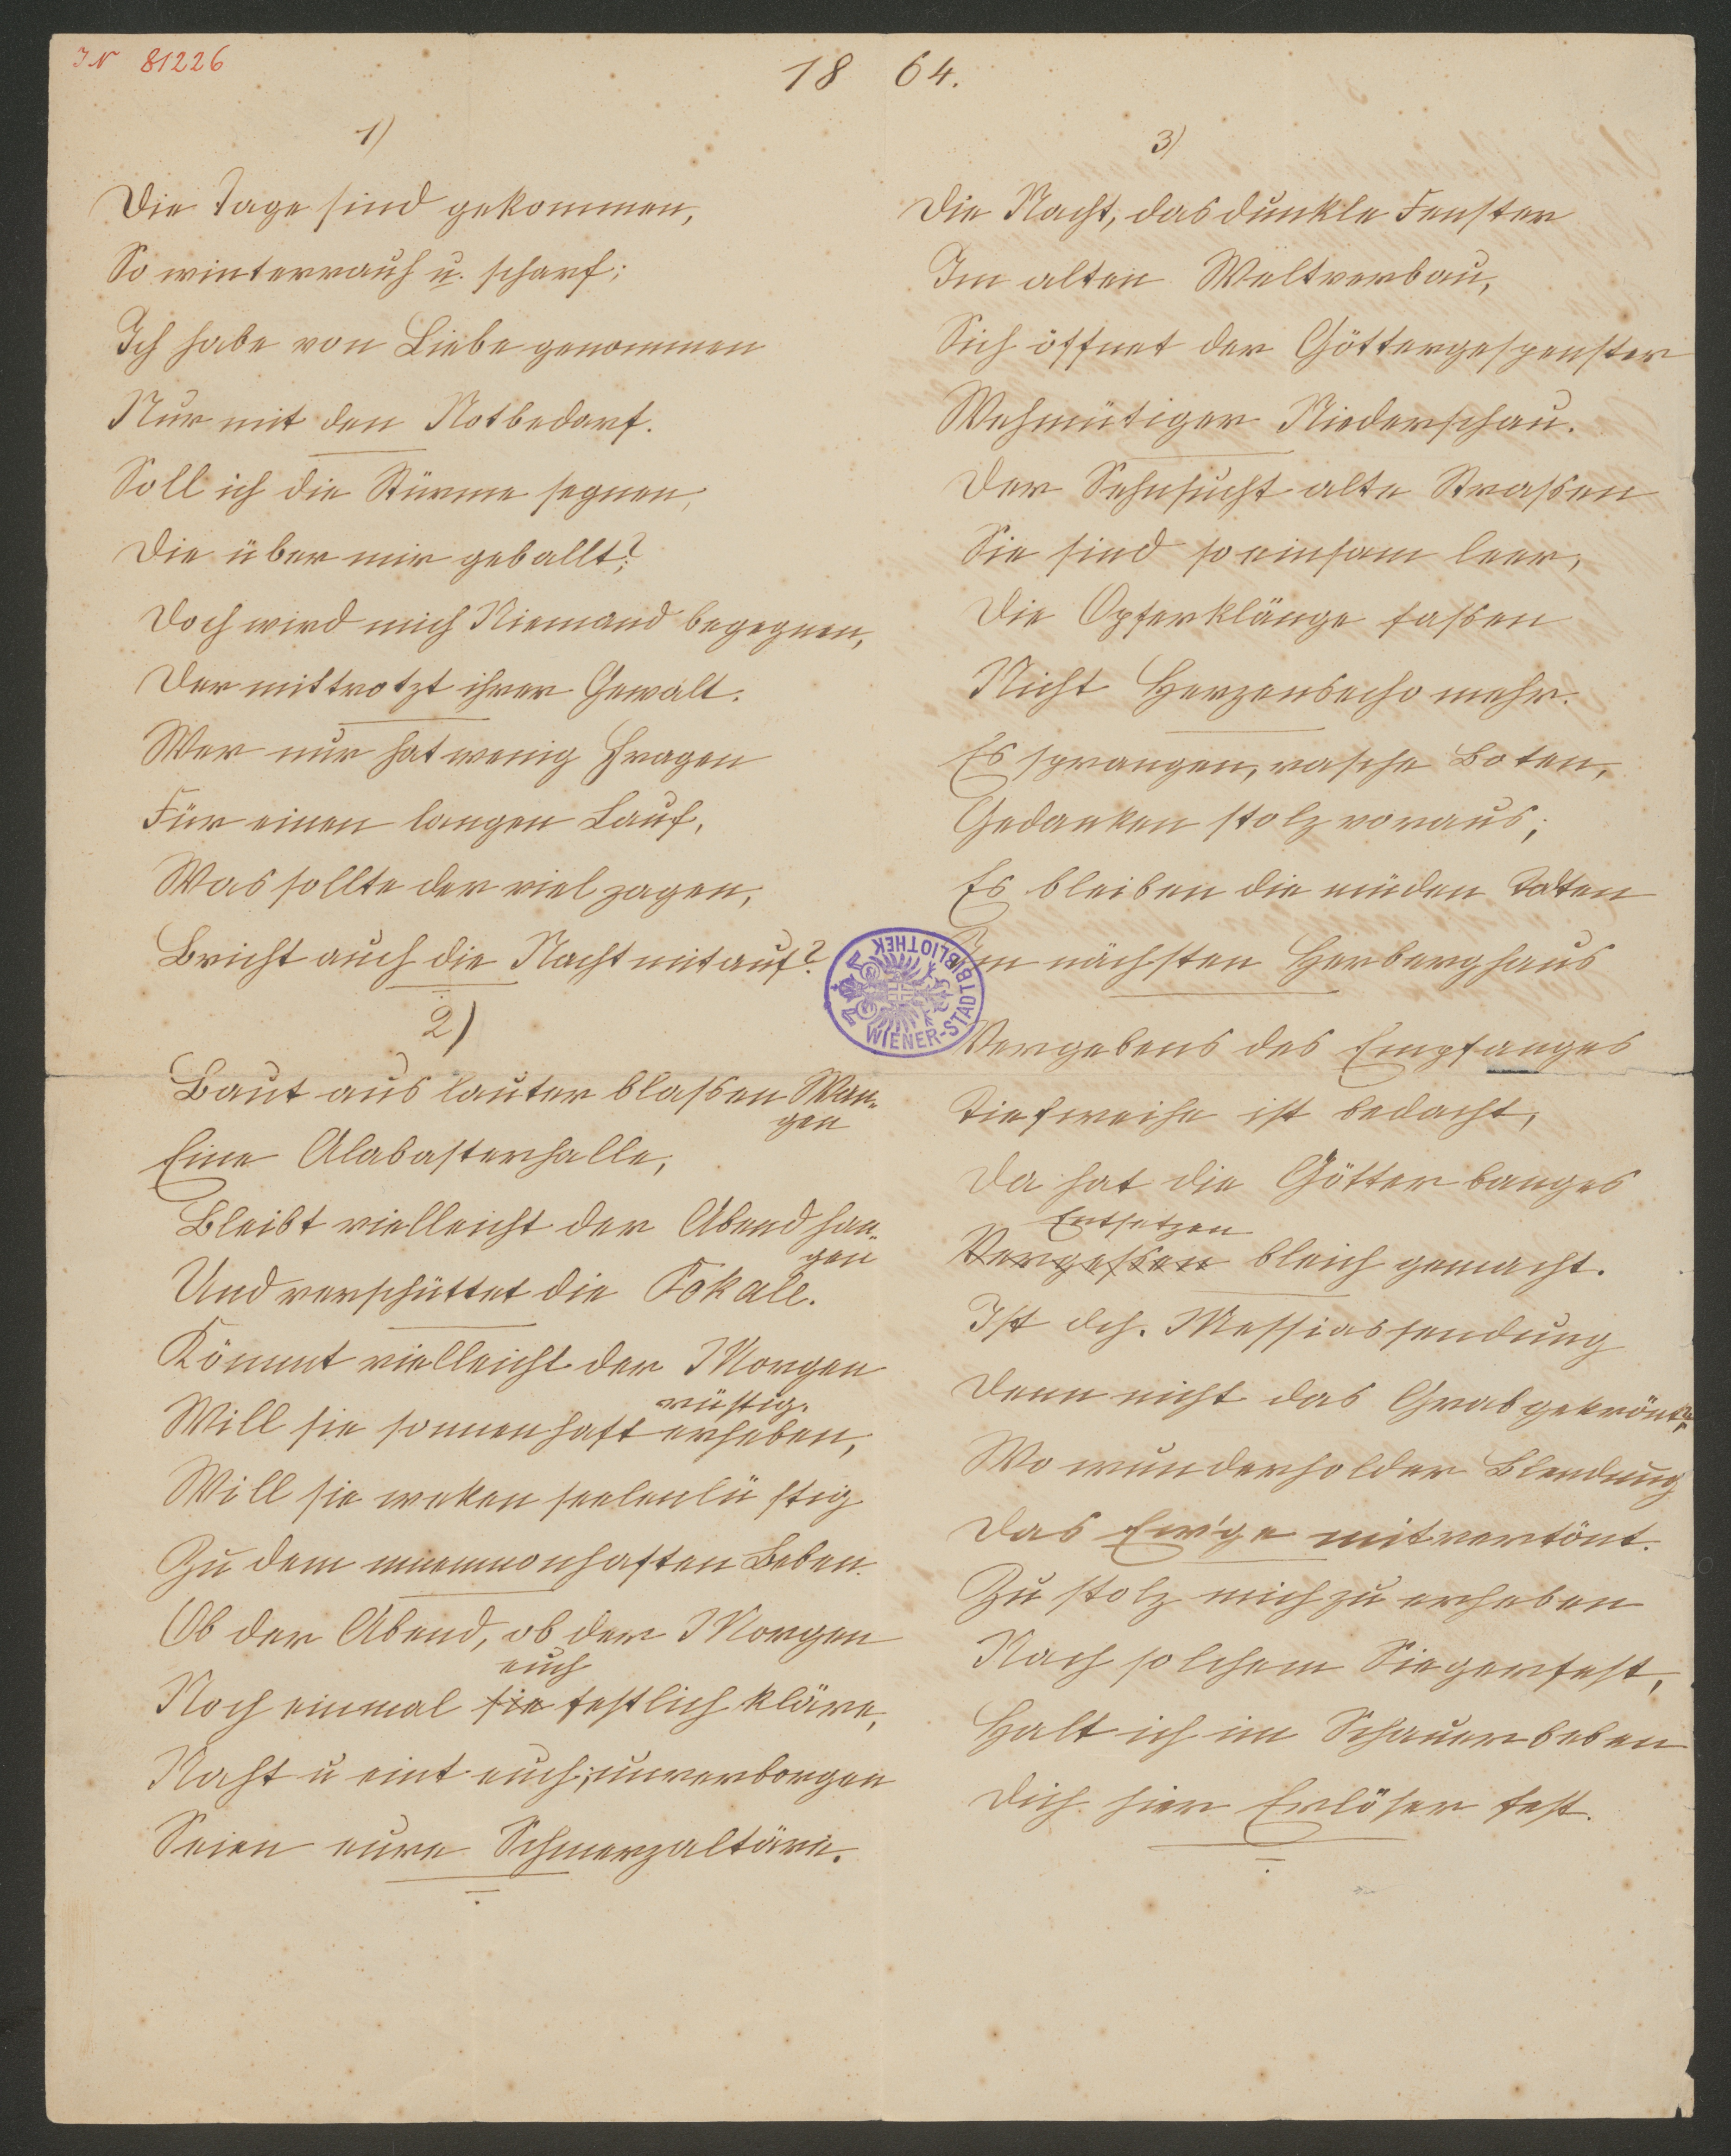 IN 81226
18 64.
1)
Die Tage sind gekommen,
So winterrauh u. scharf;
Ich habe von Liebe genommen
Nur mit den Notbedarf.
Soll ich die Stürme segnen,
Die über mir geballt?
Doch wird mich Niemand begegnen,
Der mittrotzt ihrer Gewalt.
Wer nur hat wenig Fragen
Für einen langen Lauf,
Was sollte der viel zagen,
Bricht auch die Nacht mit auf?
2)
Baut aus lauter blassen Wan-
gen
Eine Alabasterhalle,
Bleibt vielleicht der Abend han-
gen
Und verschüttet die Pokale.
Kömmt vielleicht der Morgen
rüstig.
Will sie sonnenhaft erheben,
Will sie weken seelenlüstig
Zu dem memnonhaften Beben.
Ob der Abend, ob der Morgen
euch
Noch einmal sie festlich kläre,
Naht u eint euch; unverborgen
Seien eure Schmerzaltäre.
3)
Die Nacht, das dunkle Fenster
Im alten Weltverbau,
Sich öffnet der Göttergespenster
Wehmütiger Niederschau.
Der Sehnsucht alte Strassen
Sie sind so einsam leer,
Die Opferklänge fassen
Nicht Herzensecho mehr.
Es sprangen, rasche Boten,
Gedanken stolz voraus;
Es bleiben die müden Todten
Im nächsten Herberghaus
Vergebens des Empfanges
Tiefweihe ist bedacht,
Da hat die Götter banges
Entsetzen
Vergessen bleich gemacht.
Ist dch. Messiassendung
Denn nicht das Grab gekrönt,
Wo wunderholder Blendung
Das Ew'ge mitvertönt.
Zu stolz mich zu erheben
Nach solchem Siegerfest,
Halt ich im Schauerbeben
Dich hier Erlöser fest.
WIENER-STADTBIBLIOTHEK